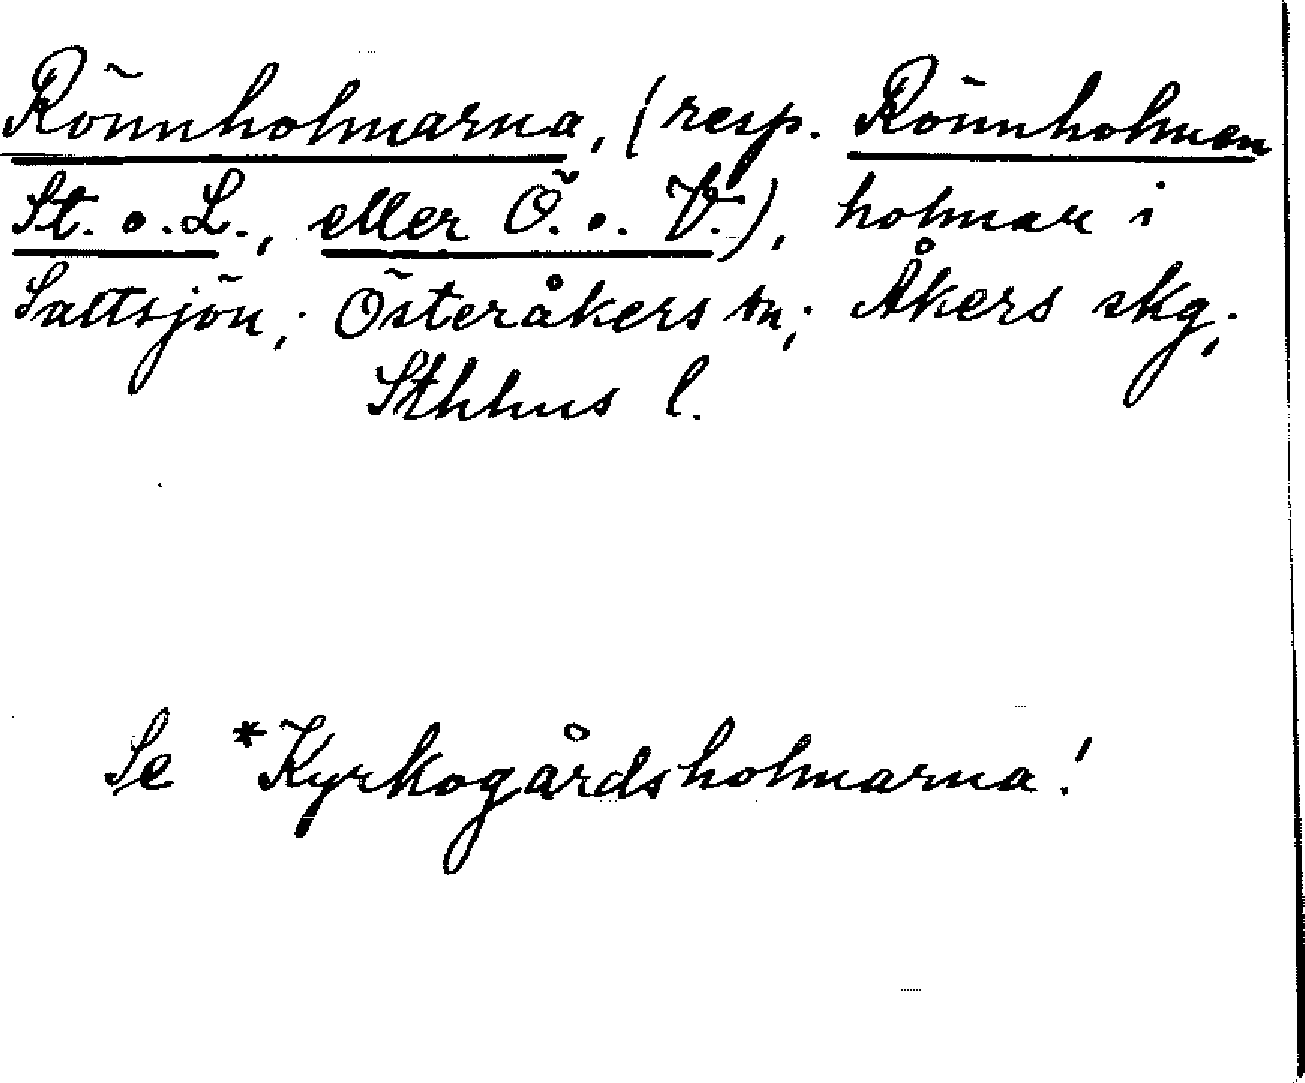 Rönnholmarna, (resp. Rönnholmen
St. o. L., eller Ö. o. V.), holmar i
Saltsjön; Österåkers sn; Åkers skg;
Sthlms l.
Se *Kyrkogårdsholmarna!